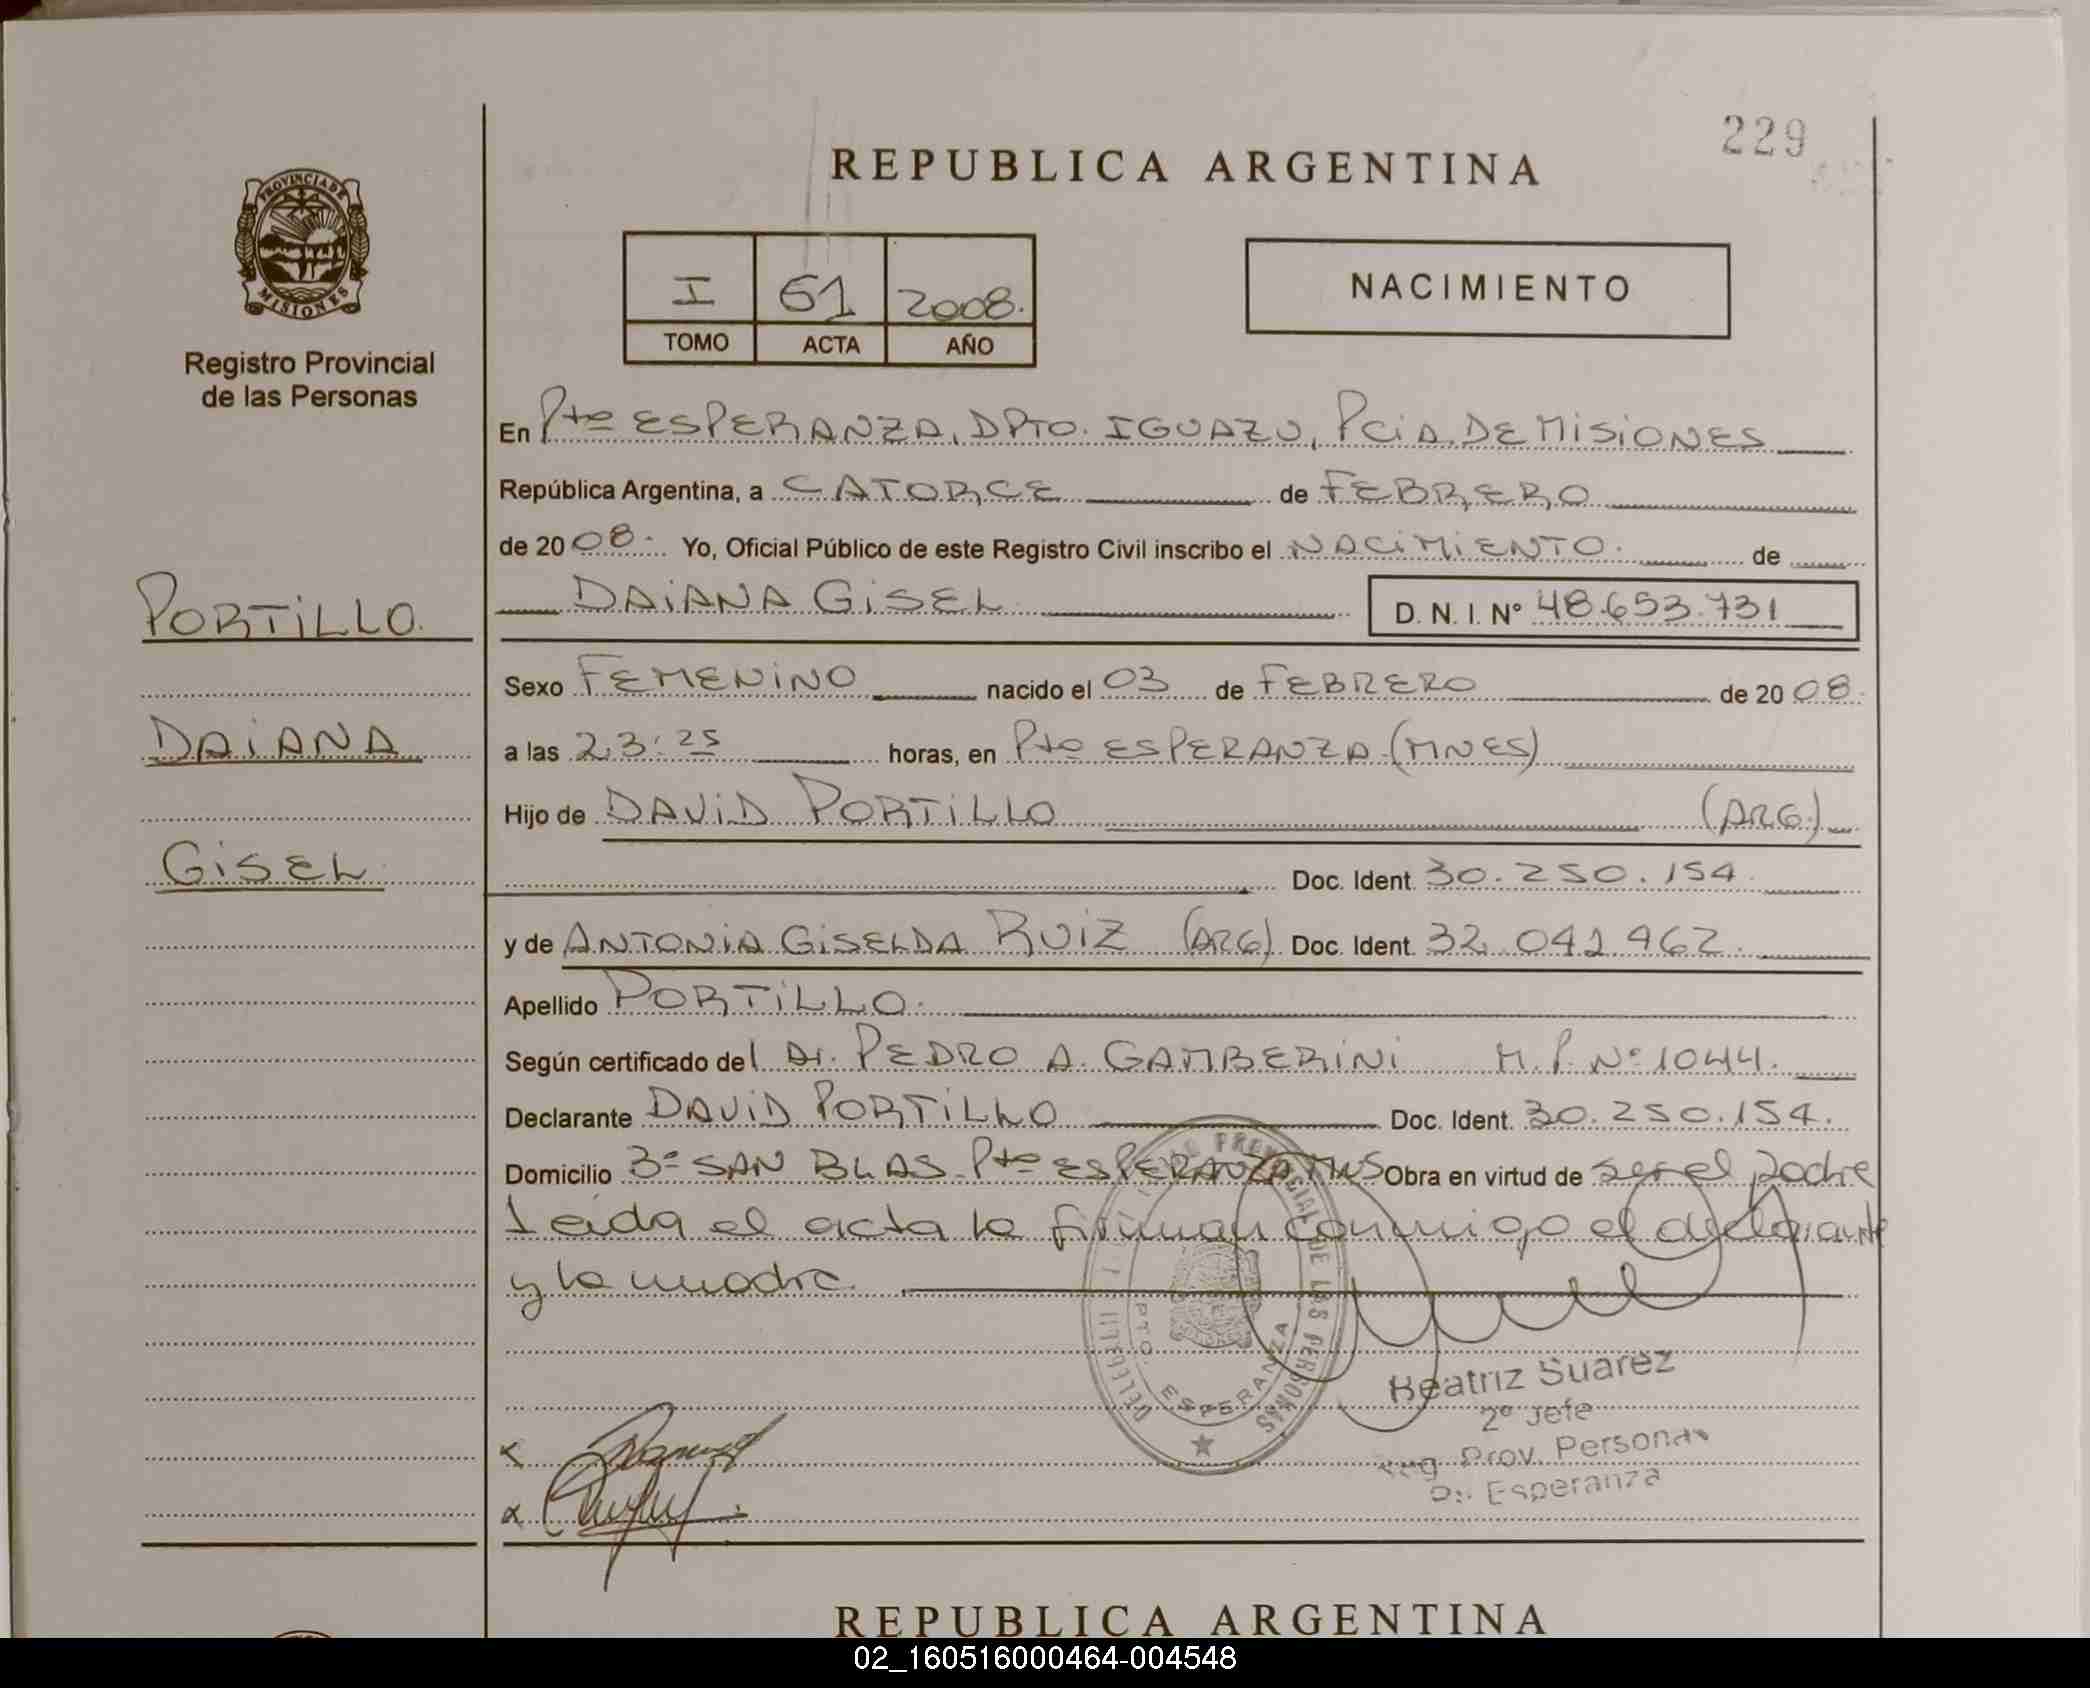 229
REPUBLICA ARGENTINA
PROVINCIA DE
MISIONES
Registro Provincial
de las Personas
I 61 2008.
TOMO ACTA AÑO
NACIMIENTO
En Pto ESPERANZA, DPTO. IGUAZU, PCiA. DE MISIONES
República Argentina, a CATORCE de FEBRERO
de 20 08. Yo, Oficial Público de este Registro Civil inscribo el NACIMIENTO. de
DAIANA GISEL D. N. I. Nº 48.653.731
PORTILLO.
DAIANA
GISEL
Sexo FEMENINO nacido el 03 de FEBRERO de 20 08.
a las 23:25 horas, en Pto ESPERANZA (MNES)
Hijo de DAVID PORTILLO (ARG.)
Doc. Ident. 30.250.154
y de ANTONIA GISELDA RUIZ (ARG) Doc. Ident. 32.042.962.
Apellido PORTILLO.
Según certificado del Dr. PEDRO A. GAMBERINI M.P. Nº 1044.
Declarante DAVID PORTILLO Doc. Ident. 30.250.154.
Domicilio Bº SAN BLAS. Pto ESPERANZA MNS Obra en virtud de ser el padre
Leida el acta la firman conmigo el declarante
y la madre.
PROVINCIAL DE LAS PERSONAS
PTO. ESPERANZA
Beatriz Suarez
2º Jefe
Reg. Prov. Personas
Pto. Esperanza
REPUBLICA ARGENTINA
02_160516000464-004548